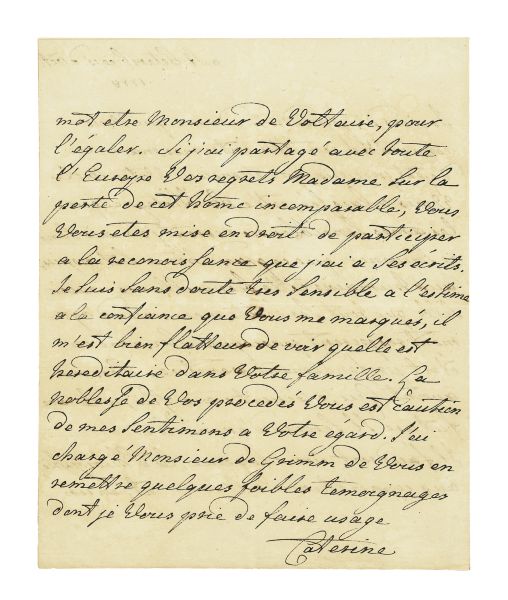 mot etre Monsieur de Voltaire, pour
l'égaler. Si j'ai partagé avec toute
l'Europe Vos regrets Madame sur la
perte de cet home incomparable, Vous
Vous etes mise en droit de participer
a la reconoissance que j'ai a Ses écrits.
Je suis sans doute tres sensible a l'estime
a la confiance que Vous me marqués, il
m'est bien flatteur de voir quelle est
hereditaire dans Votre famille. La
noblesse de Vos procedés Vous est caution
de mes sentimens a Votre égard. J'ai
chargé Monsieur de Grimm de Vous en
remettre quelques foibles temoignages
dont je Vous prie de faire usage
Caterine